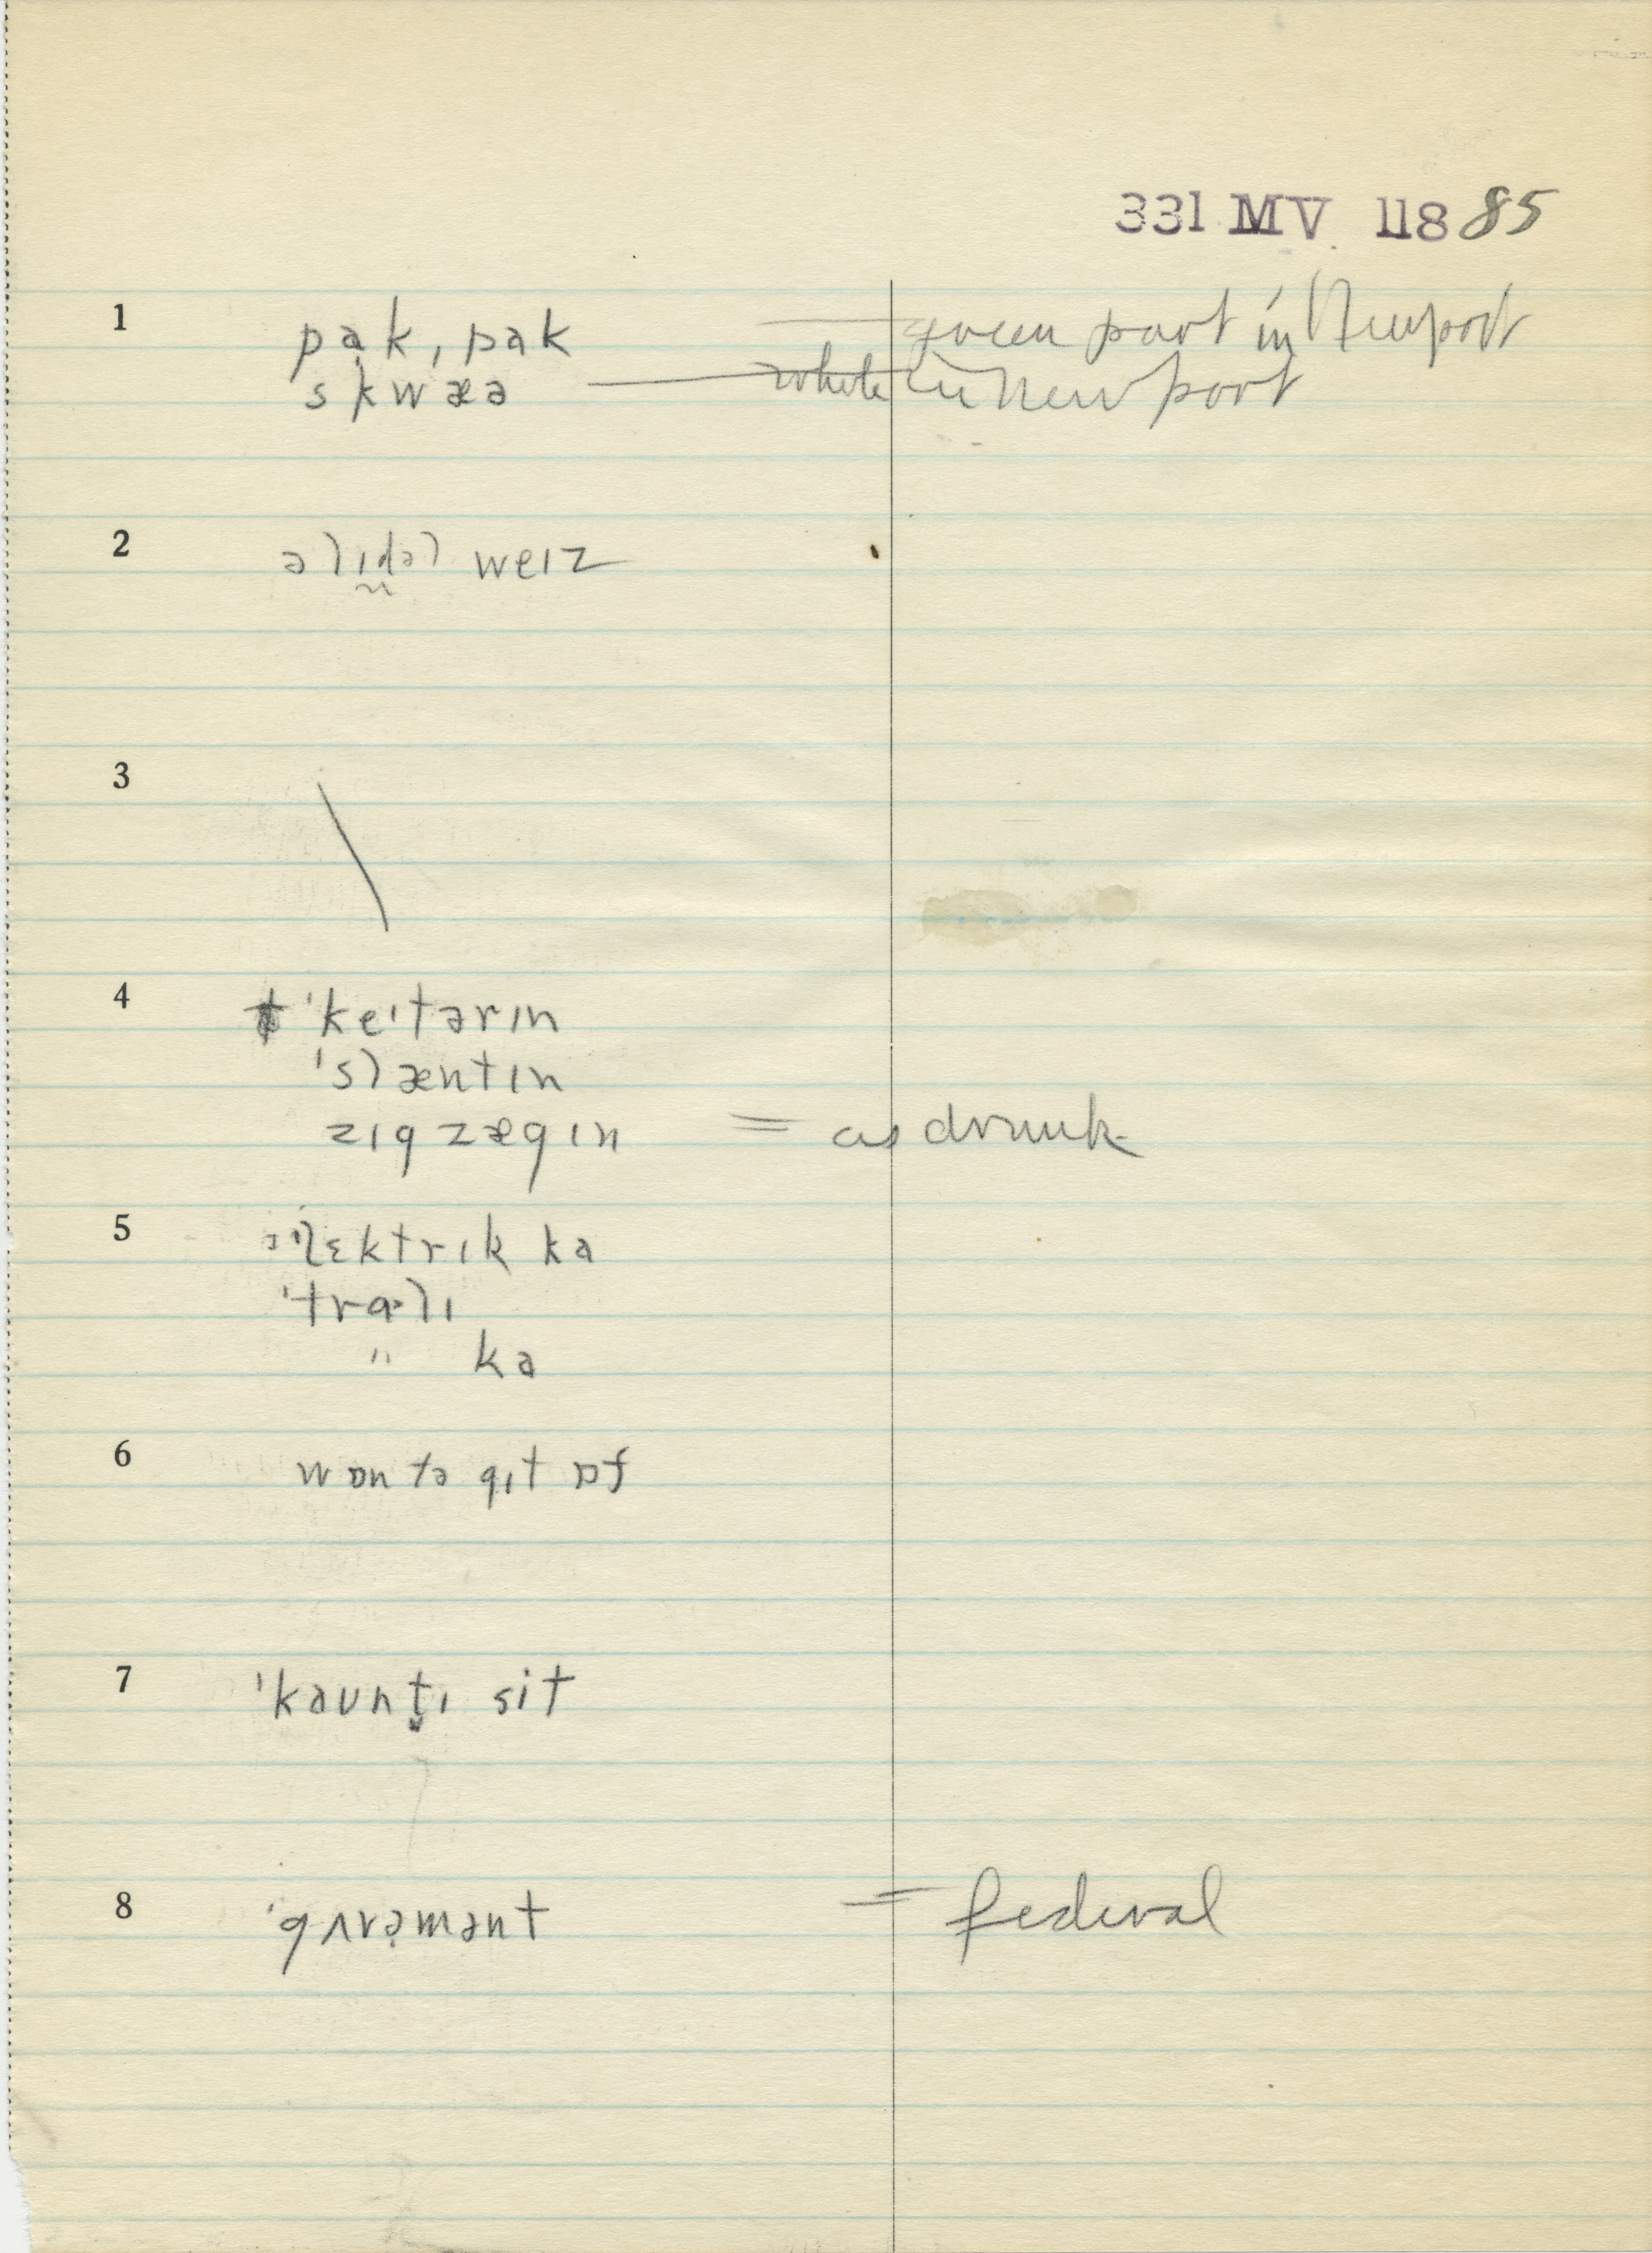 331 MV 11885
1 pạk, pak — green part in Newport
skwæə — whole in Newport
2 əlɪdəl weɪz
3 \
4 'keɪtərɪn
'slæntɪn
zɪgzægɪn = as drunk
5 ə'lɛktrɪk ka
'trɑlɪ
" ka
6 wɒn tə gɪt ɒf
7 'kaʊnt̬ɪ sit
8 'gʌvrə̣mənt = federal